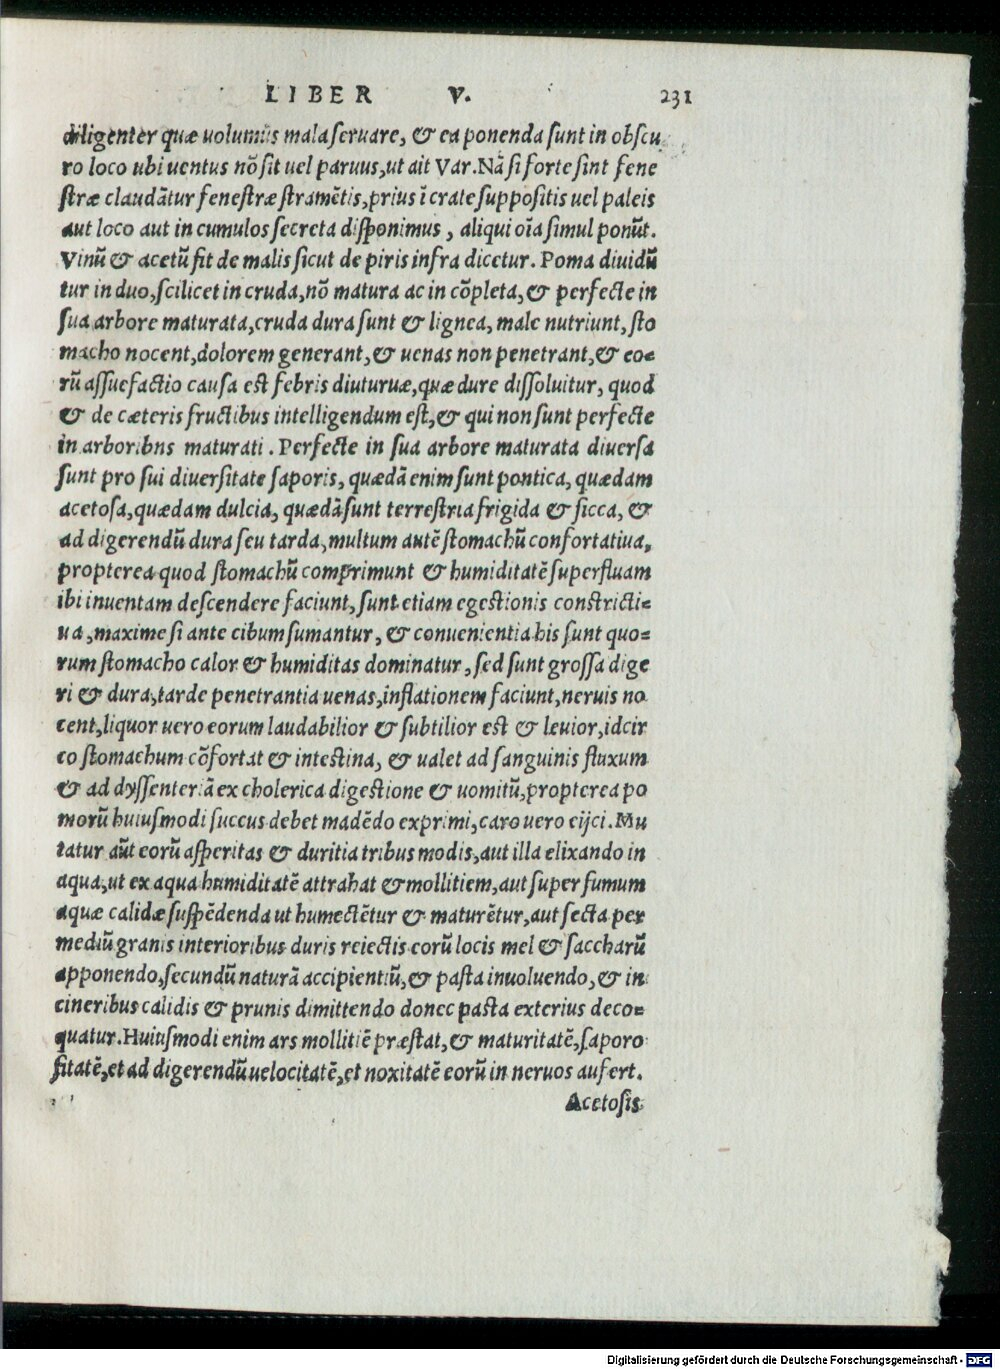 LIBER V. 231
diligenter quæ uolumus mala seruare, & ea ponenda sunt in obscu
ro loco ubi uentus nō sit uel paruus, ut ait Var. Nā si forte sint fene
stræ claudātur fenestræ stramētis, prius ī crate suppositis uel paleis
aut loco aut in cumulos secreta disponimus, aliqui oīa simul ponūt.
Vinū & acetū fit de malis sicut de piris infra dicetur. Poma diuidū
tur in duo, scilicet in cruda, nō matura ac in cōpleta, & perfecte in
sua arbore maturata, cruda dura sunt & lignea, male nutriunt, sto
macho nocent, dolorem generant, & uenas non penetrant, & eo=
rū assuefactio causa est febris diuturuæ, quæ dure dissoluitur, quod
& de cæteris fructibus intelligendum est, & qui non sunt perfecte
in arboribns maturati. Perfecte in sua arbore maturata diuersa
sunt pro sui diuersitate saporis, quædā enim sunt pontica, quædam
acetosa, quædam dulcia, quædā sunt terrestria frigida & sicca, &
ad digerendū dura seu tarda, multum autē stomachū confortatiua,
propterea quod stomachū comprimunt & humiditatē superfluam
ibi inuentam descendere faciunt, sunt etiam egestionis constricti=
ua, maxime si ante cibum sumantur, & conuenientia his sunt quo=
rum stomacho calor & humiditas dominatur, sed sunt grossa dige
ri & dura, tarde penetrantia uenas, inflationem faciunt, neruis no
cent, liquor uero eorum laudabilior & subtilior est & leuior, idcir
co stomachum cōfortat & intestina, & ualet ad sanguinis fluxum
& ad dyssenteriā ex cholerica digestione & uomitū, propterea po
morū huiusmodi succus debet madēdo exprimi, caro uero eijci. Mu
tatur aūt eorū asperitas & duritia tribus modis, aut illa elixando in
aqua, ut ex aqua humiditatē attrahat & mollitiem, aut super fumum
aquæ calidæ suspēdenda ut humectētur & maturētur, aut secta per
mediū granis interioribus duris reiectis eorū locis mel & saccharū
apponendo, secundū naturā accipientiū, & pasta inuoluendo, & in
cineribus calidis & prunis dimittendo donec pasta exterius deco=
quatur. Huiusmodi enim ars mollitiē præstat, & maturitatē, saporo
sitatē, et ad digerendū uelocitatē, et noxitatē eorū in neruos aufert.
Acetosis
Digitalisierung gefördert durch die Deutsche Forschungsgemeinschaft - DFG